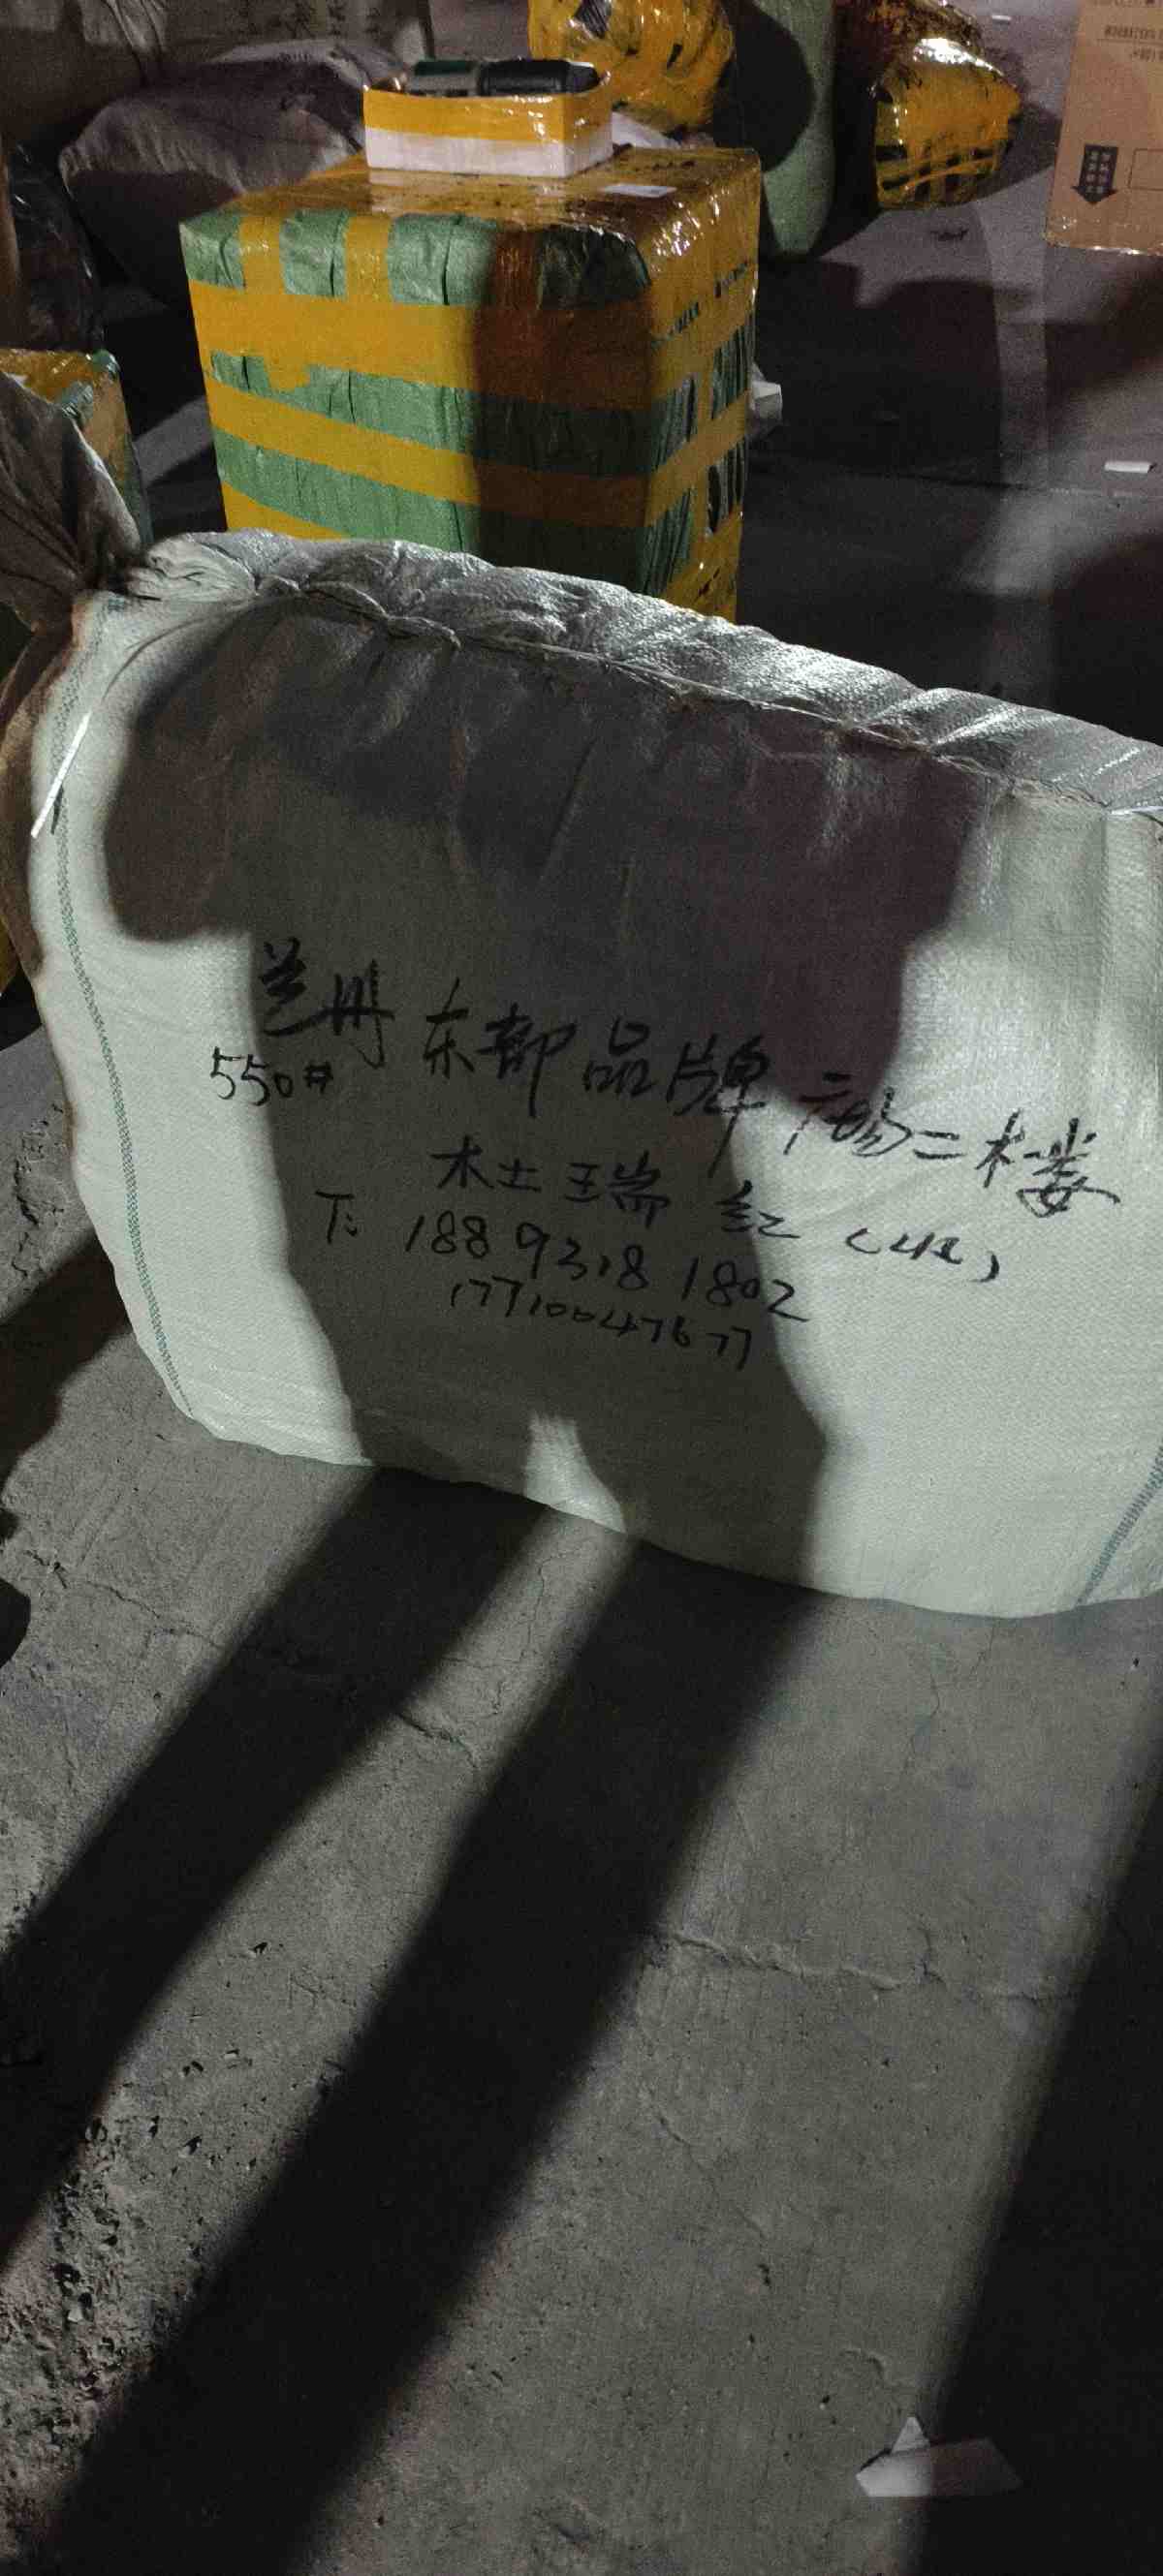 兰州东部品牌广场二楼
550#
杜瑞红(收)
T: 18893181802
17710047677